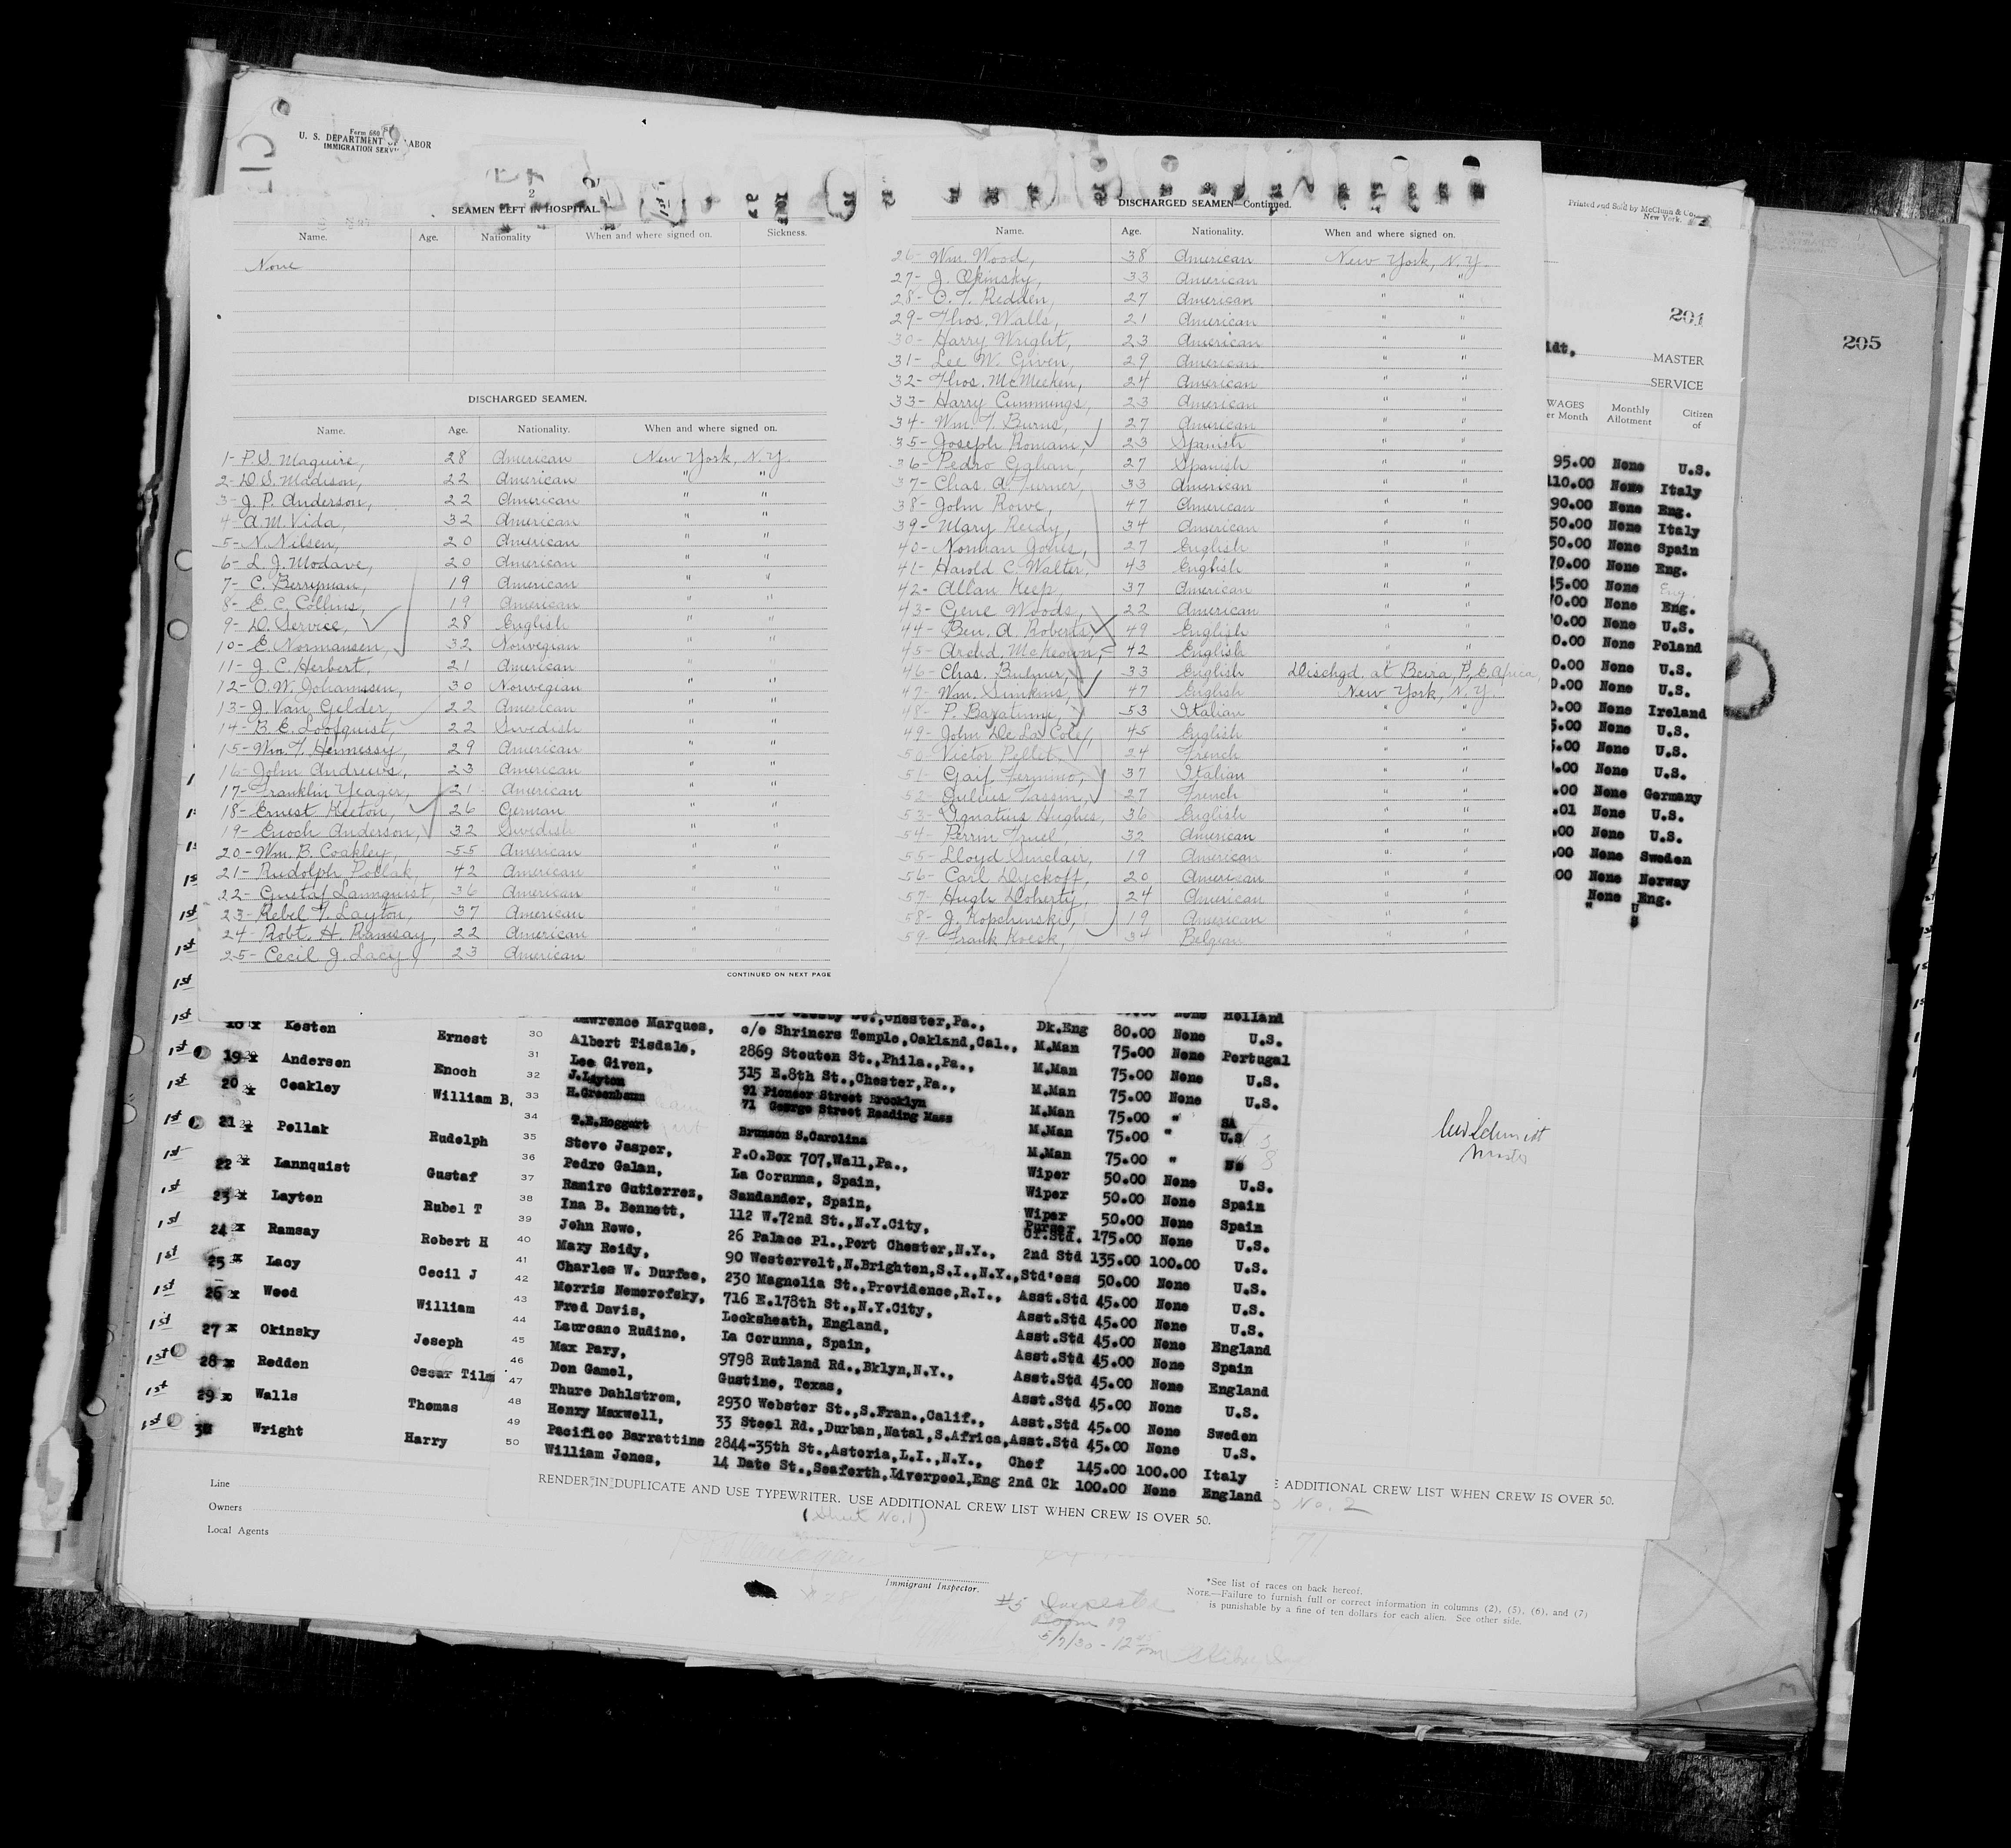 Form 680
U. S. DEPARTMENT OF LABOR
IMMIGRATION SERV
2
SEAMEN LEFT IN HOSPITAL.
Name. Age. Nationality When and where signed on. Sickness.
None
DISCHARGED SEAMEN.
Name. Age. Nationality. When and where signed on.
1- P.S. Maguire, 28 American New York, N.Y.
2- D.S. Madison, 22 American " "
3- J. P. Anderson, 22 American " "
4- A.M. Vida, 32 American " "
5- N. Nilsen, 20 American " "
6- L. J. Modave, 20 American " "
7- C. Berryman, 19 American " "
8- E. C. Collins, 19 American " "
9- D. Service, 28 English " "
10- E. Normansen, 32 Norwegian " "
11- J. C. Herbert, 21 American " "
12- O. W. Johannssen, 30 Norwegian " "
13- J. Van Gelder, 22 American " "
14- B. E. Loofquist, 22 Swedish " "
15- Wm. T. Hennessy, 29 American " "
16- John Andrews, 23 American " "
17- Franklin Yeager, 21 American " "
18- Ernest Keeton, 26 German " "
19- Enoch Anderson, 32 Swedish " "
20- Wm. B. Coakley, 55 American " "
21- Rudolph Pollak, 42 American " "
22- Gustaf Lannquist, 36 American " "
23- Rebel T. Layton, 37 American " "
24- Robt. H. Ramsay, 22 American " "
25- Cecil J. Lacy, 23 American " "
CONTINUED ON NEXT PAGE
DISCHARGED SEAMEN—Continued.
Name. Age. Nationality. When and where signed on.
26- Wm. Wood, 38 American New York, N.Y.
27- J. Okinsky, 33 American " "
28- O. T. Redden, 27 American " "
29- Thos. Walls, 21 American " "
30- Harry Wright, 23 American " "
31- Lee W. Given, 29 American " "
32- Thos. McMeeken, 24 American " "
33- Harry Cummings, 23 American " "
34- Wm. T. Burns, 27 American " "
35- Joseph Romani, 23 Spanish " "
36- Pedro Galian, 27 Spanish " "
37- Chas. A. Turner, 33 American " "
38- John Rowe, 47 American " "
39- Mary Reidy, 34 American " "
40- Norman Jones, 27 English " "
41- Harold C. Walter, 43 English " "
42- Allan Keep, 37 American " "
43- Gene Woods, 22 American " "
44- Ben. A. Roberts, 49 English " "
45- Archd. McKeown, 42 English " "
46- Chas. Bulmer, 33 English Dischgd. at Beira, P. E. Africa,
47- Wm. Simkins, 47 English New York, N.Y.
48- P. Baratinni, 53 Italian " "
49- John De La Cole, 45 English " "
50- Victor Pellet, 24 French " "
51- Gaif Fermino, 37 Italian " "
52- Julius Tassin, 27 French " "
53- Ignatius Hughes, 36 English " "
54- Perrin Truel, 32 American " "
55- Lloyd Sinclair, 19 American " "
56- Carl Dyckoff, 20 American " "
57- Hugh Doherty, 24 American " "
58- J. Kopchinski, 19 American " "
59- Frank Koeck, 34 Belgian " "
Printed and Sold by McClunn & Co.
New York.
201
205
idt, MASTER
SERVICE
WAGES er Month Monthly Allotment Citizen of
95.00 None U.S.
110.00 None Italy
90.00 None Eng.
50.00 None Italy
50.00 None Spain
70.00 None Eng.
45.00 None Eng.
70.00 None Eng.
0.00 None U.S.
0.00 None Poland
0.00 None U.S.
0.00 None U.S.
0.00 None Ireland
5.00 None U.S.
5.00 None U.S.
.00 None U.S.
.00 None Germany
.01 None U.S.
.00 None U.S.
.00 None Sweden
00 None Norway
None Eng.
" U S
1st 18 x Kesten Ernest
1st 19 x Anderson Enoch
1st 20 x Coakley William B.
1st 21 x Pollak Rudolph
1st 22 x Lannquist Gustaf
1st 23 x Layton Rubel T
1st 24 x Ramsay Robert H
1st 25 x Lacy Cecil J
1st 26 x Wood William
1st 27 x Okinsky Joseph
1st 28 x Redden Osсar Tilm
1st 29 x Walls Thomas
1st 30 Wright Harry
Chester,Pa., None Holland
30 Lawrence Marques, c/o Shriners Temple,Oakland,Cal., Dk.Eng 80.00 None U.S.
31 Albert Tisdale, 2869 Stouten St.,Phila.,Pa., M.Man 75.00 None Portugal
32 Lee Given, 315 E.8th St.,Chester,Pa., M.Man 75.00 None U.S.
33 J.Layton 91 Pioneer Street Brooklyn M.Man 75.00 None U.S.
34 H.Greenbaum 71 George Street Reading Mass M.Man 75.00 " SA
35 T.E.Hoggart Brunson S.Carolina M.Man 75.00 " U.S
36 Steve Jasper, P.O.Box 707,Wall,Pa., M.Man 75.00 "
37 Pedro Galan, La Corunna, Spain, Wiper 50.00 None U.S.
38 Ramiro Gutierrez, Sandander, Spain, Wiper 50.00 None Spain
39 Ina B. Bennett, 112 W.72nd St.,N.Y.City, Wiper 50.00 None Spain
40 John Rowe, 26 Palace Pl.,Port Chester,N.Y., Purser Cr.Std. 175.00 None U.S.
41 Mary Reidy, 90 Westervelt,N.Brighten,S.I.,N.Y., 2nd Std 135.00 100.00 U.S.
42 Charles W. Durfee, 230 Magnolia St.,Providence,R.I., Std'ess 50.00 None U.S.
43 Morris Nemerofsky, 716 E.178th St.,N.Y.City, Asst.Std 45.00 None U.S.
44 Fred Davis, Locksheath, England, Asst.Std 45.00 None U.S.
45 Laureano Rudino, La Corunna, Spain, Asst.Std 45.00 None England
46 Max Pary, 9798 Rutland Rd.,Bklyn,N.Y., Asst.Std 45.00 None Spain
47 Don Gamel, Gustine, Texas, Asst.Std 45.00 None England
48 Thure Dahlstrom, 2930 Webster St.,S.Fran.,Calif., Asst.Std 45.00 None U.S.
49 Henry Maxwell, 33 Steel Rd.,Durban,Natal,S.Africa, Asst.Std 45.00 None Sweden
50 Pacifico Barrattino 2844-35th St.,Astoria,L.I.,N.Y., Asst.Std 45.00 None U.S.
William Jones, 14 Date St.,Seaforth,Liverpool,Eng Chef 145.00 100.00 Italy
2nd Ck 100.00 None England
Master
Line
Owners
Local Agents
RENDER IN DUPLICATE AND USE TYPEWRITER. USE ADDITIONAL CREW LIST WHEN CREW IS OVER 50.
(Sheet No.1)
E ADDITIONAL CREW LIST WHEN CREW IS OVER 50.
No. 2
Immigrant Inspector.
*See list of races on back hereof.
NOTE.—Failure to furnish full or correct information in columns (2), (5), (6), and (7)
is punishable by a fine of ten dollars for each alien. See other side.
#5 Inspected
Room 19
5/7/30 - 12